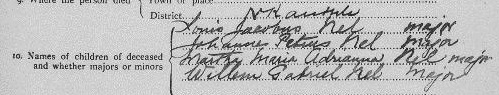 9. Where the person died
Town or place
District
Louis Jacobus Nel major
Johannes Petrus Nel major
10. Names of children of deceased
and whether majors or minors
Martha Maria Adrianna Nel major
Willem Gabriel Nel major